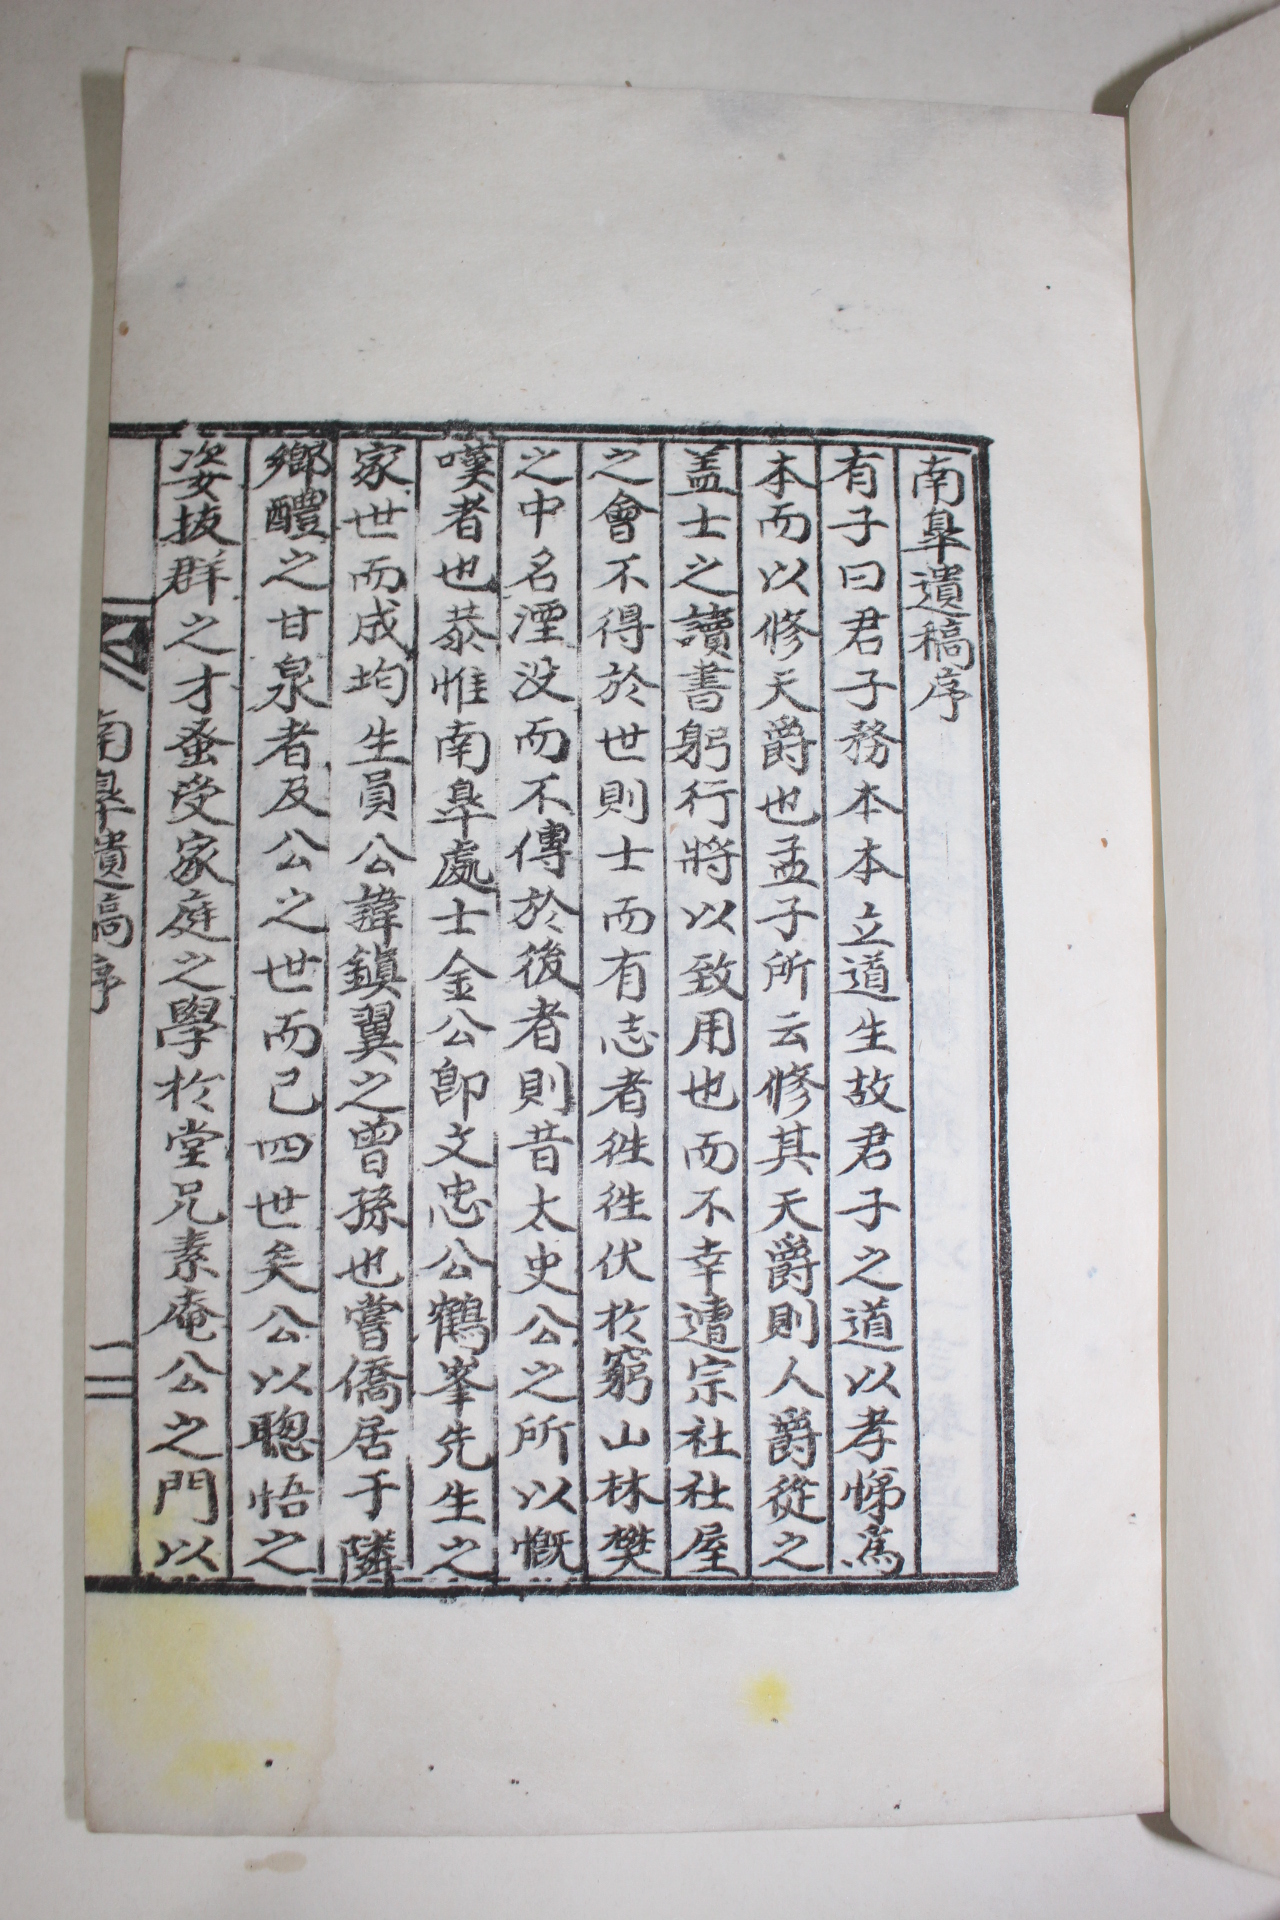 南臯遺稿序
有子曰君子務本本立道生故君子之道以孝悌爲
本而以修天爵也孟子所云修其天爵則人爵從之
盖士之讀書躬行將以致用也而不幸遭宗社社屋
之會不得於世則士而有志者徃徃伏於窮山林樊
之中名湮沒而不傳於後者則昔太史公之所以慨
嘆者也恭惟南臯處士金公卽文忠公鶴峯先生之
家世而成均生員公諱鎭翼之曾孫也嘗僑居于隣
鄕醴之甘泉者及公之世而已四世矣公以聰悟之
姿拔群之才蚤受家庭之學於堂兄素庵公之門以
南臯遺稿序
一